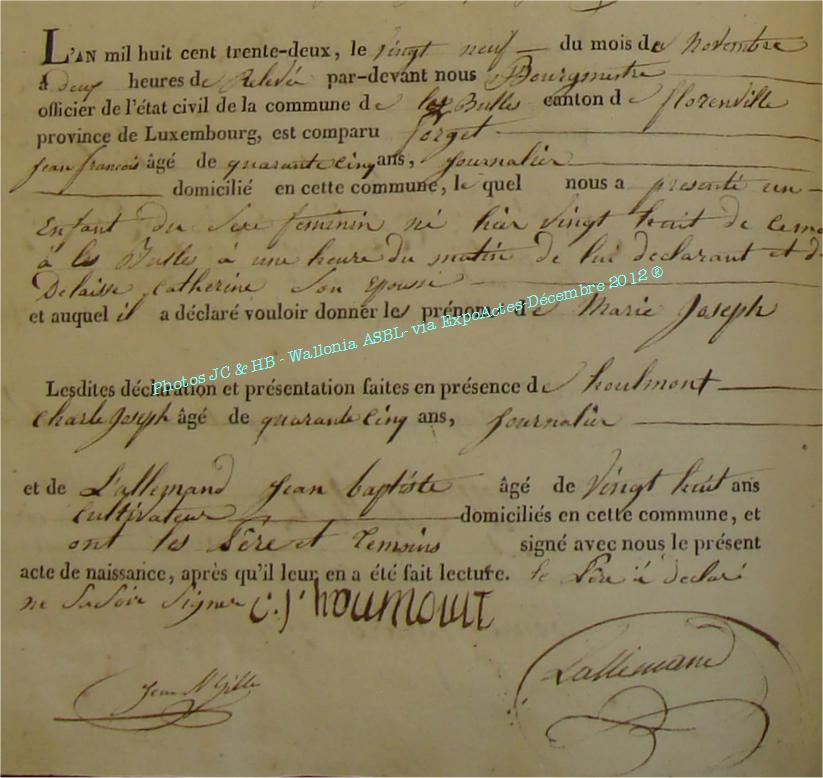 L'AN mil huit cent trente-deux, le vingt neuf du mois de Novembre
à deux heures de Relevée par-devant nous Bourgmestre
officier de l'état civil de la commune de les Bulles canton de florenville
province de Luxembourg, est comparu forget
jean françois âgé de quarante cinq ans, journalier
domicilié en cette commune, le quel nous a presenté un
Enfant du Sexe feminin né hier vingt huit de ce mo
à les Bulles à une heure du matin de lui declarant et d
Delaisse Catherine Son Epouse
et auquel il a déclaré vouloir donner les prénoms de Marie Joseph
Photos JC & HB - Wallonia ASBL- via ExpoActes-Décembre 2012 ®
Lesdites déclaration et présentation faites en présence de houlmont
Charle Joseph âgé de quarante cinq ans, journalier
et de L'allemand jean baptiste âgé de vingt huit ans
cultivateur domiciliés en cette commune, et
ont les Père et temoins signé avec nous le présent
acte de naissance, après qu'il leur en a été fait lecture. le Père à declaré
ne Savoir Signer C. J. houmont
Lallemand
Jean N Gille